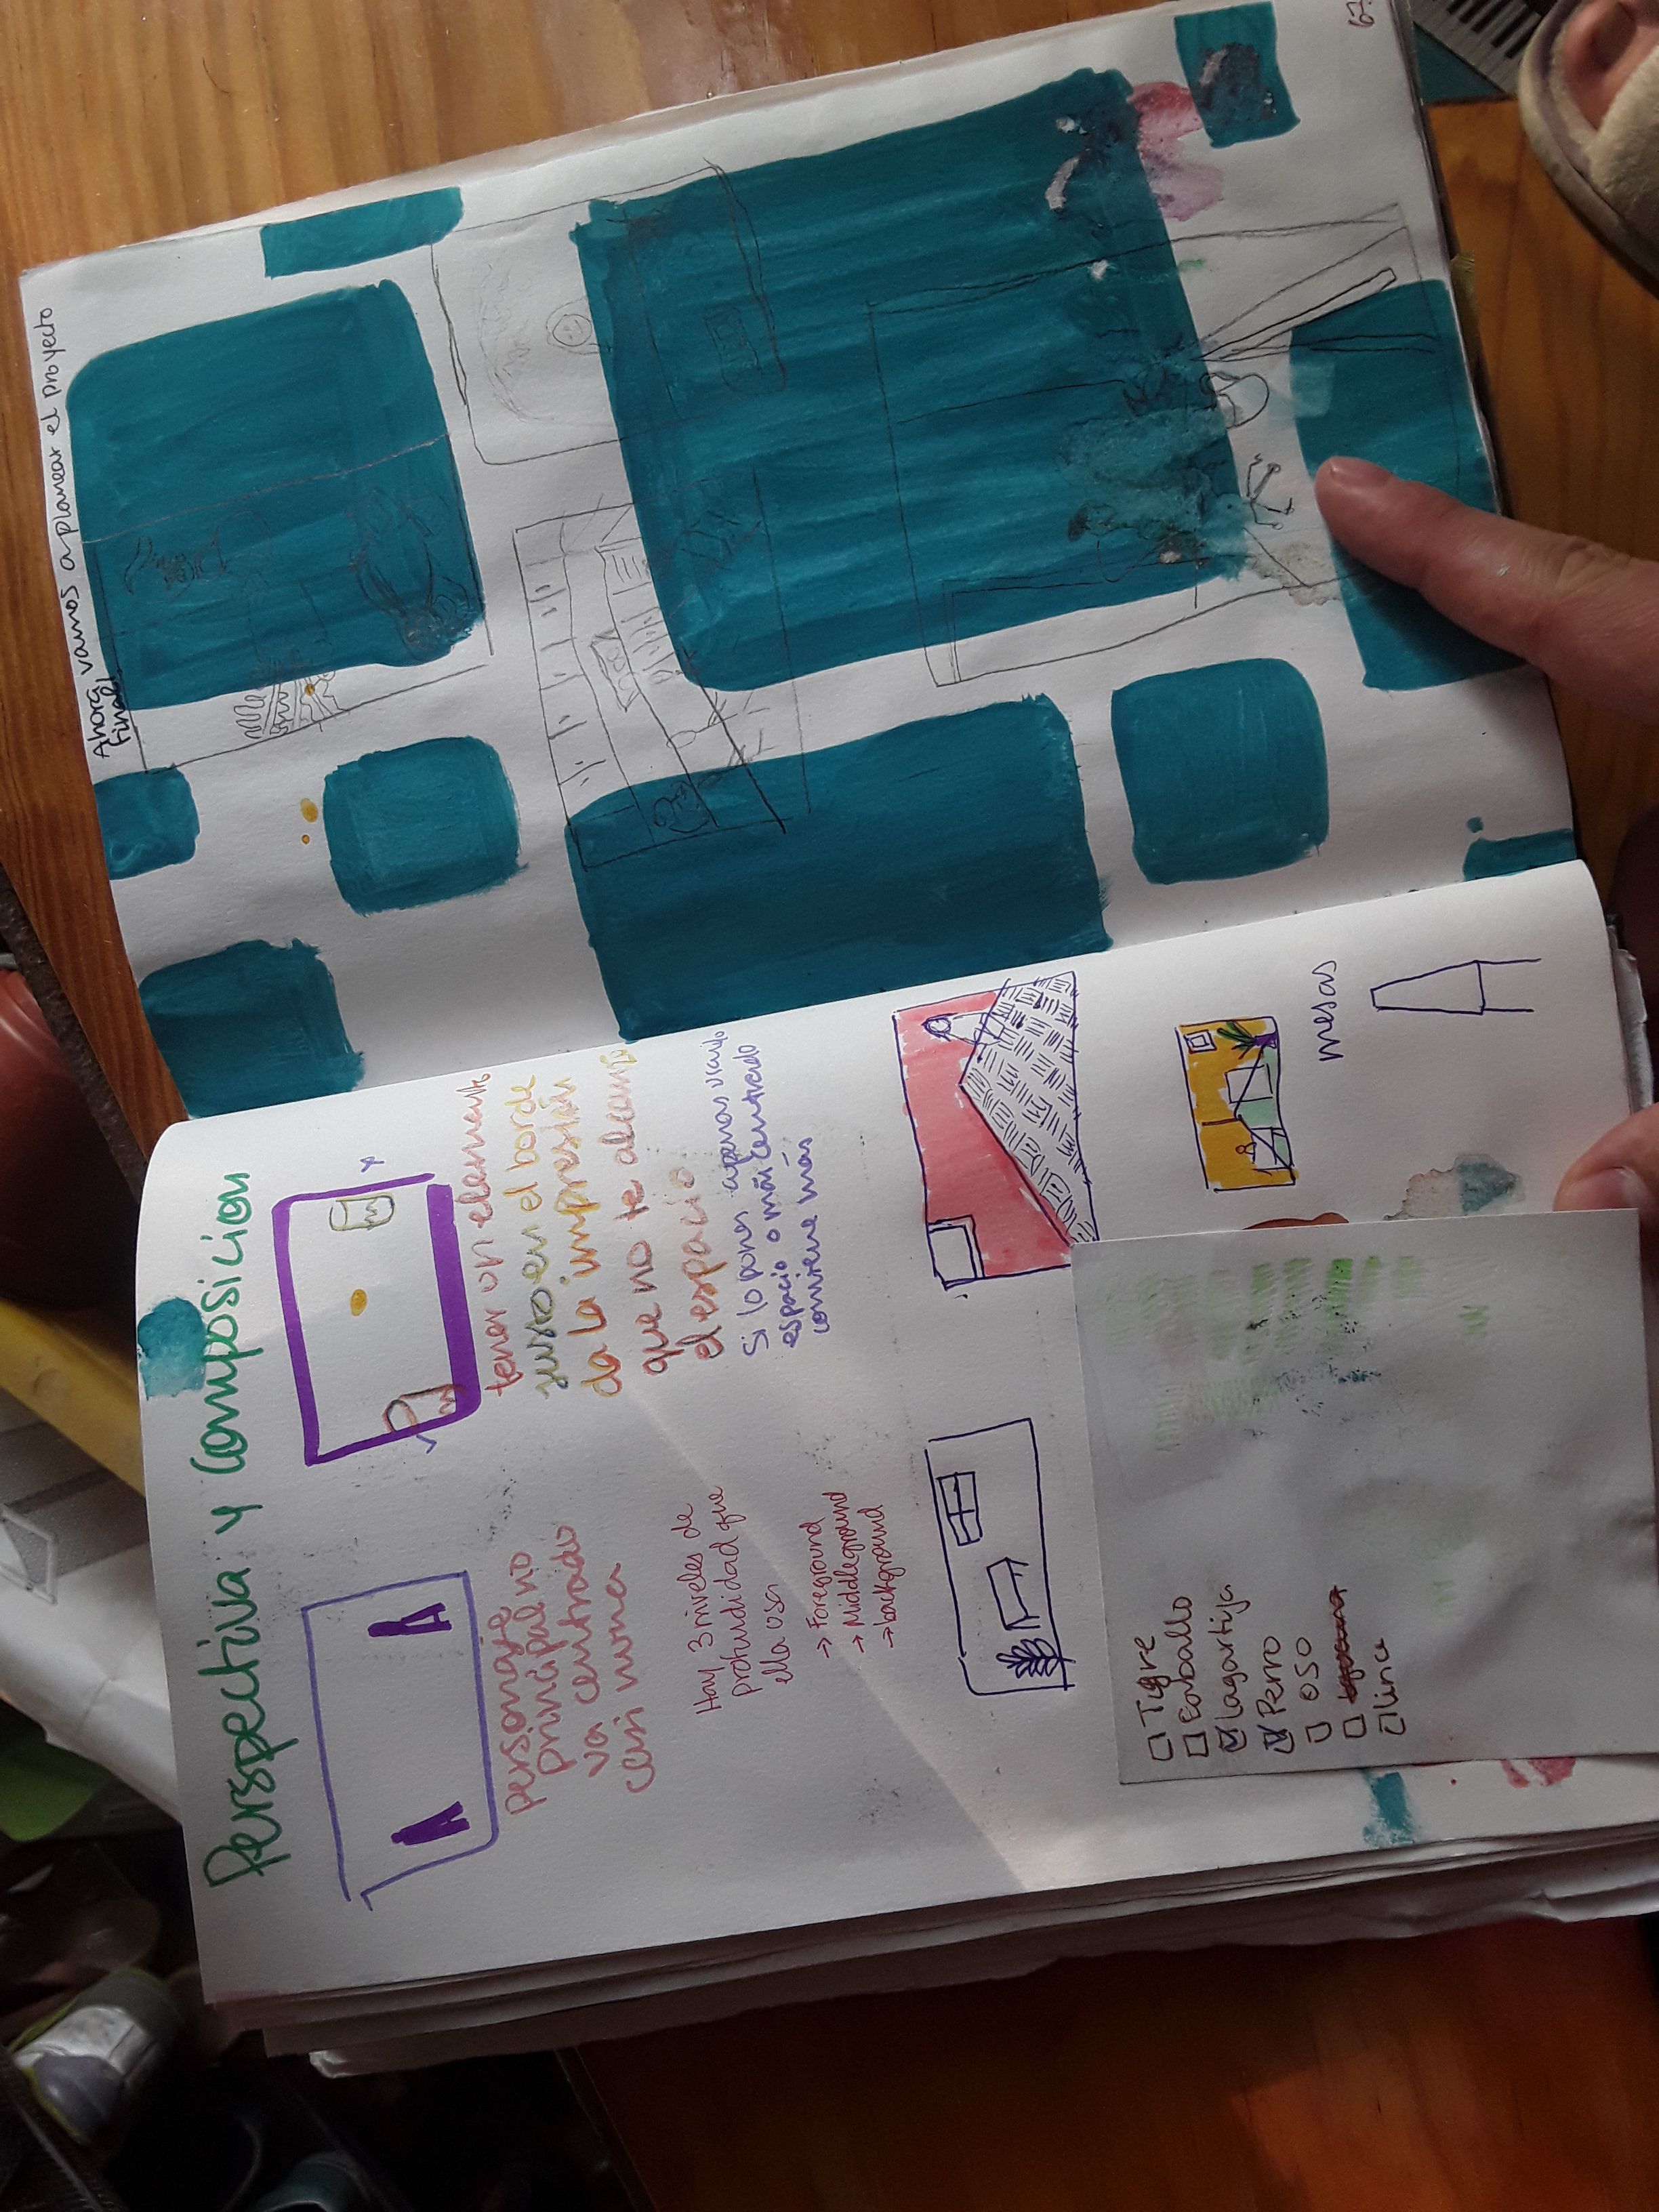 Perspectiva y Composicion
personaje
principal no
va centrado
casi nunca
tener un elemento
justo en el borde
da la impresión
que no te alcanzó
el espacio
Si lo pones apenas
espacio o más centrado
conviene más
Hay 3 niveles de
profundidad que
ella usa
→ Foreground
→ Middleground
→ background
mesas
Tigre
Caballo
Lagartija
Perro
oso
lince
Ahora vamos a planear el proyecto
final
67